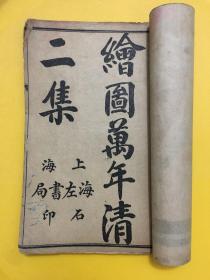 繪圖萬年清
二集
上海
海左書局
石印